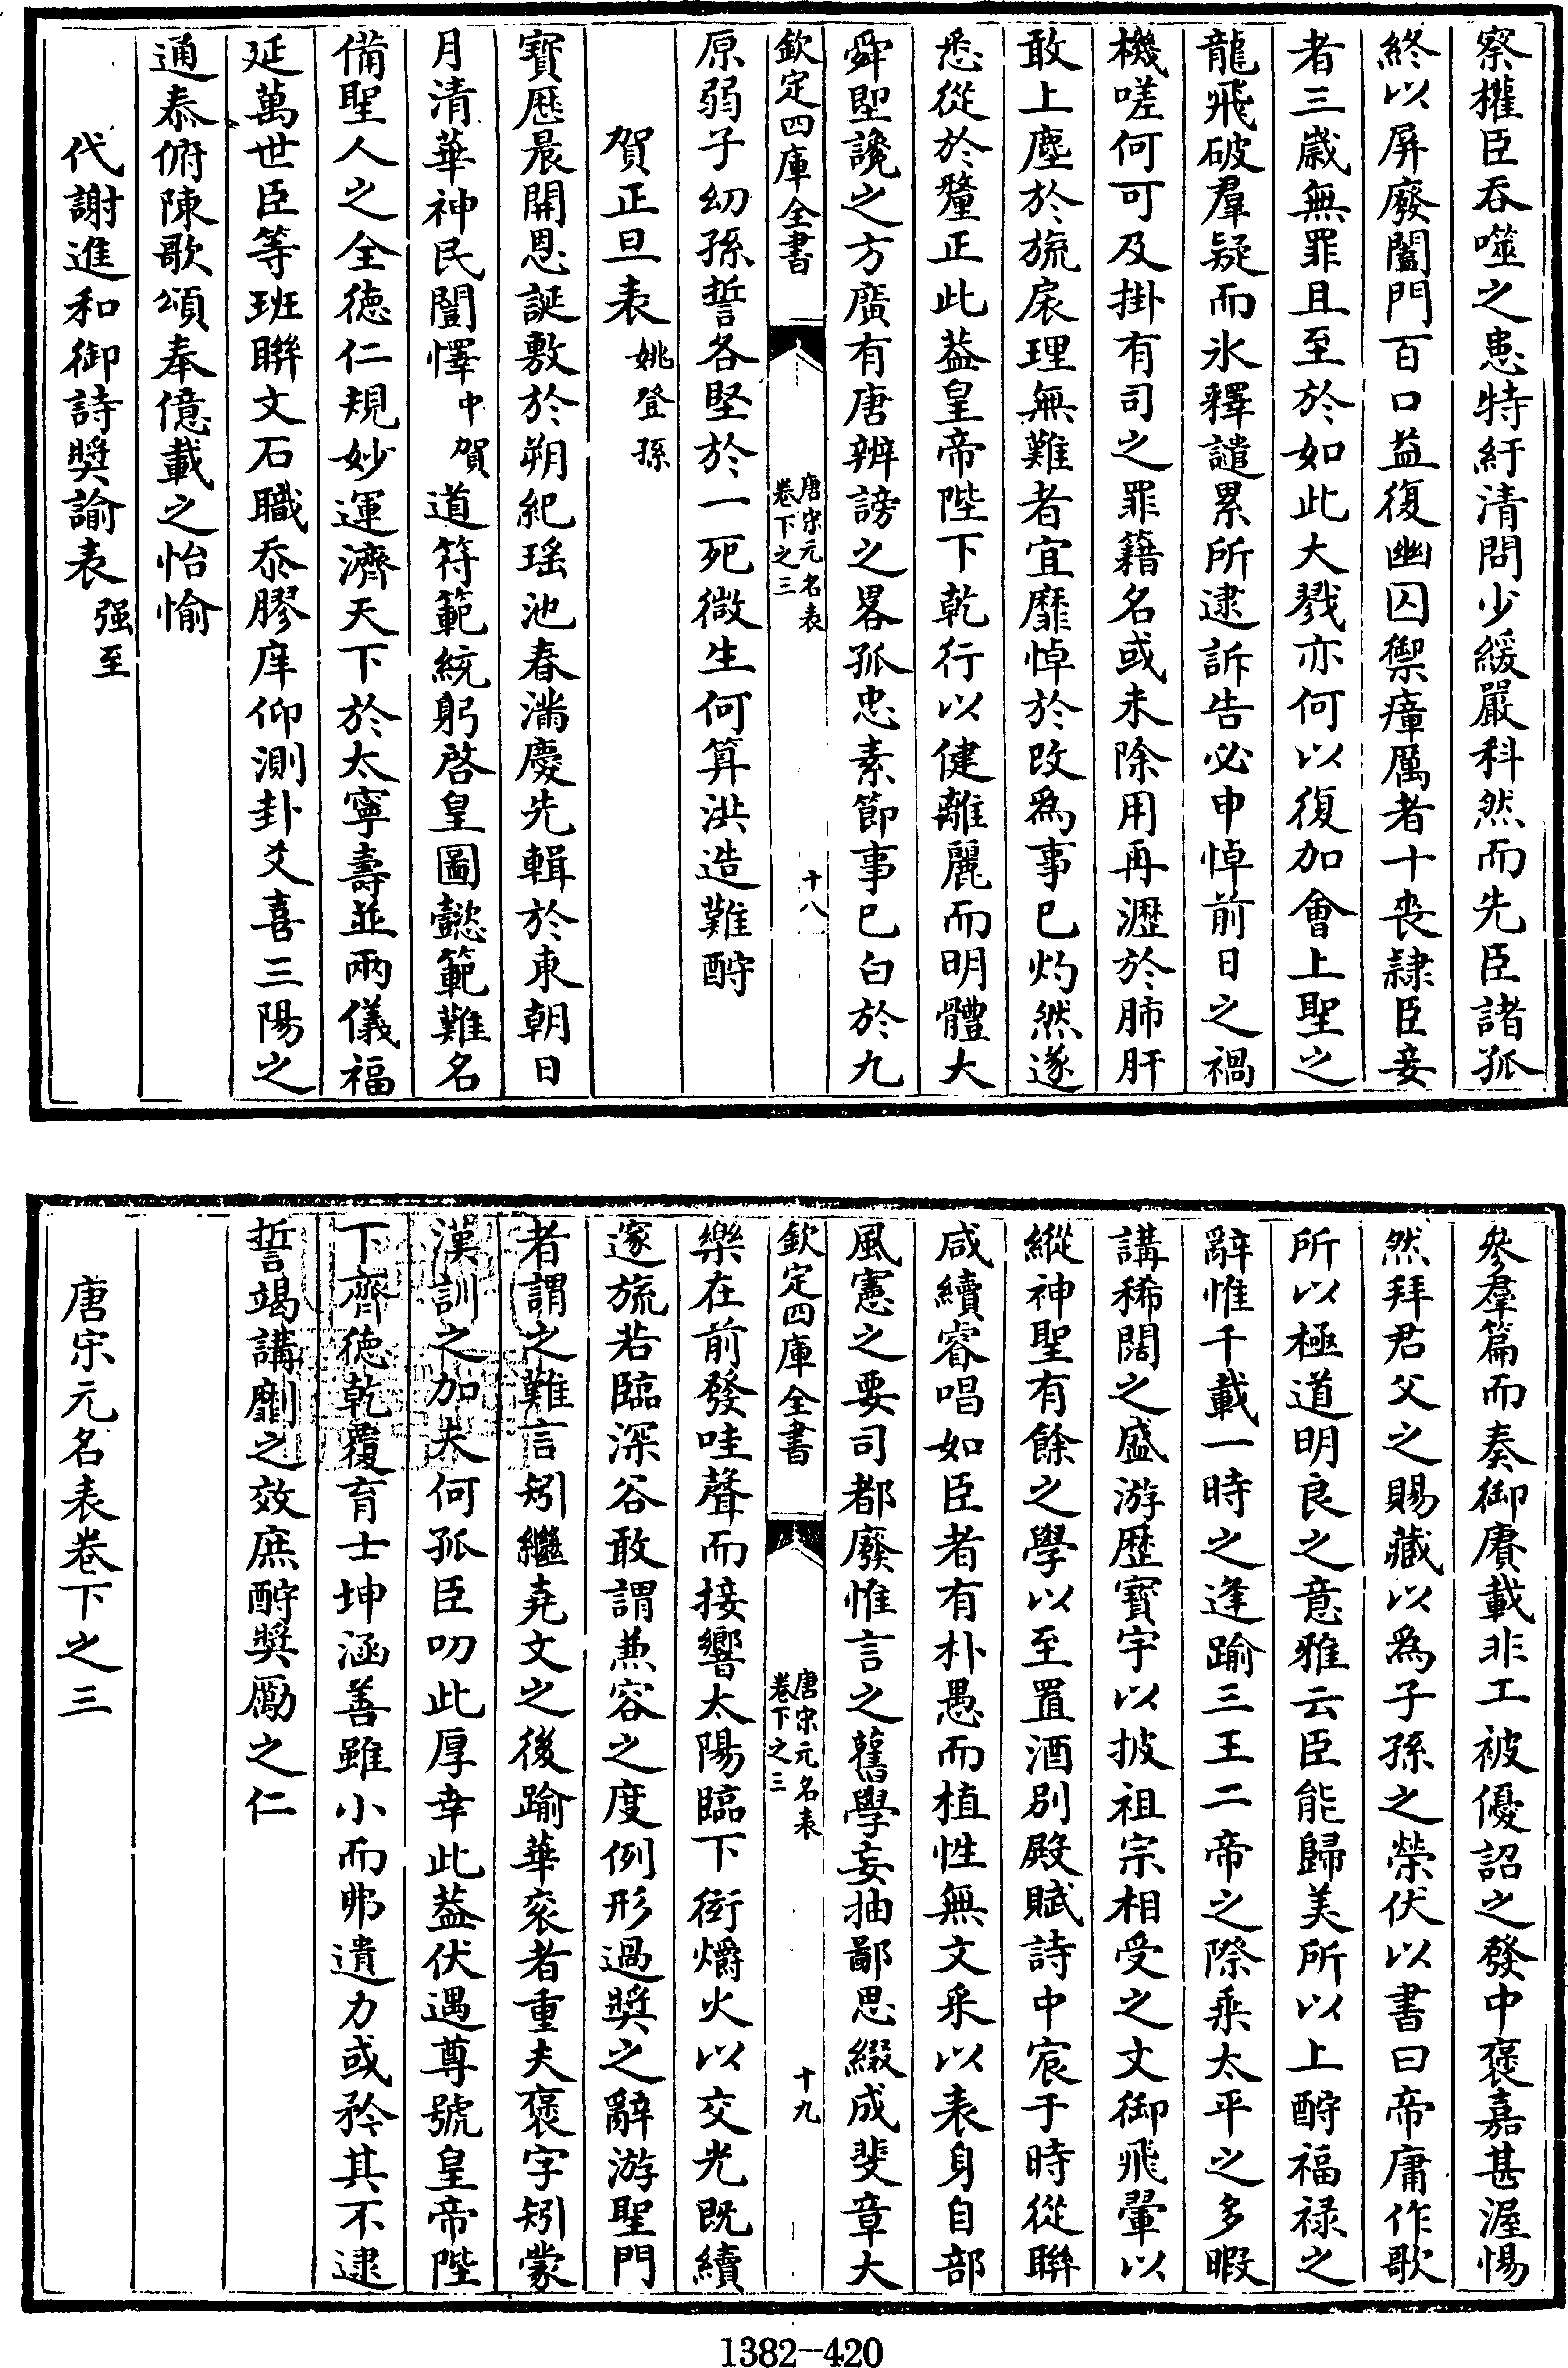 察權臣吞噬之患特紆清問少緩嚴科然而先臣諸孤
終以屏廢闔門百口益復幽囚禦瘴厲者十喪隷臣妾
者三歲無罪且至於如此大戮亦何以復加會上聖之
龍飛破羣疑而氷釋譴累所逮訴告必申悼前日之禍
機嗟何可及掛有司之罪籍名或未除用再瀝於肺肝
敢上塵於旒扆理無難者宜靡悼於改為事已灼然遂
悉從於釐正此葢皇帝陛下乾行以健離麗而明體大
舜堲讒之方廣有唐辨謗之畧孤忠素節事已白於九
欽定四庫全書
唐宋元名表
卷下之三
十八
原弱子幼孫誓各堅於一死微生何算洪造難酧
賀正旦表 姚登孫
寶歴晨開恩誕敷於朔紀瑶池春滿慶先輯於東朝日
月清華神民闓懌中賀道符範統躬啓皇圖懿範難名
備聖人之全德仁規妙運濟天下於太寧壽並兩儀福
延萬世臣等班聮文石職忝膠庠仰測卦爻喜三陽之
通泰俯陳歌頌奉億載之怡愉
代謝進和御詩奬諭表 强至
參羣篇而奏御賡載非工被優詔之發中褒嘉甚渥惕
然拜君父之賜藏以為子孫之榮伏以書曰帝庸作歌
所以極道明良之意雅云臣能歸美所以上酧福禄之
辭惟千載一時之逢踰三王二帝之際乘太平之多暇
講稀闊之盛游歴寶宇以披祖宗相受之文御飛翬以
縱神聖有餘之學以至置酒别殿賦詩中宸于時從聮
咸續睿唱如臣者有朴愚而植性無文采以表身自部
風憲之要司都廢惟言之舊學妄抽鄙思綴成斐章大
欽定四庫全書
唐宋元名表
卷下之三
十九
樂在前發哇聲而接響太陽臨下銜爝火以交光既續
邃旒若臨深谷敢謂兼容之度例形過奬之辭游聖門
者謂之難言矧繼堯文之後踰華衮者重夫褒字矧蒙
漢訓之加夫何孤臣叨此厚幸此葢伏遇尊號皇帝陛
下齊德乾覆育士坤涵善雖小而弗遺力或矜其不逮
誓竭講劘之效庶酧奬勵之仁
唐宋元名表卷下之三
1382-420